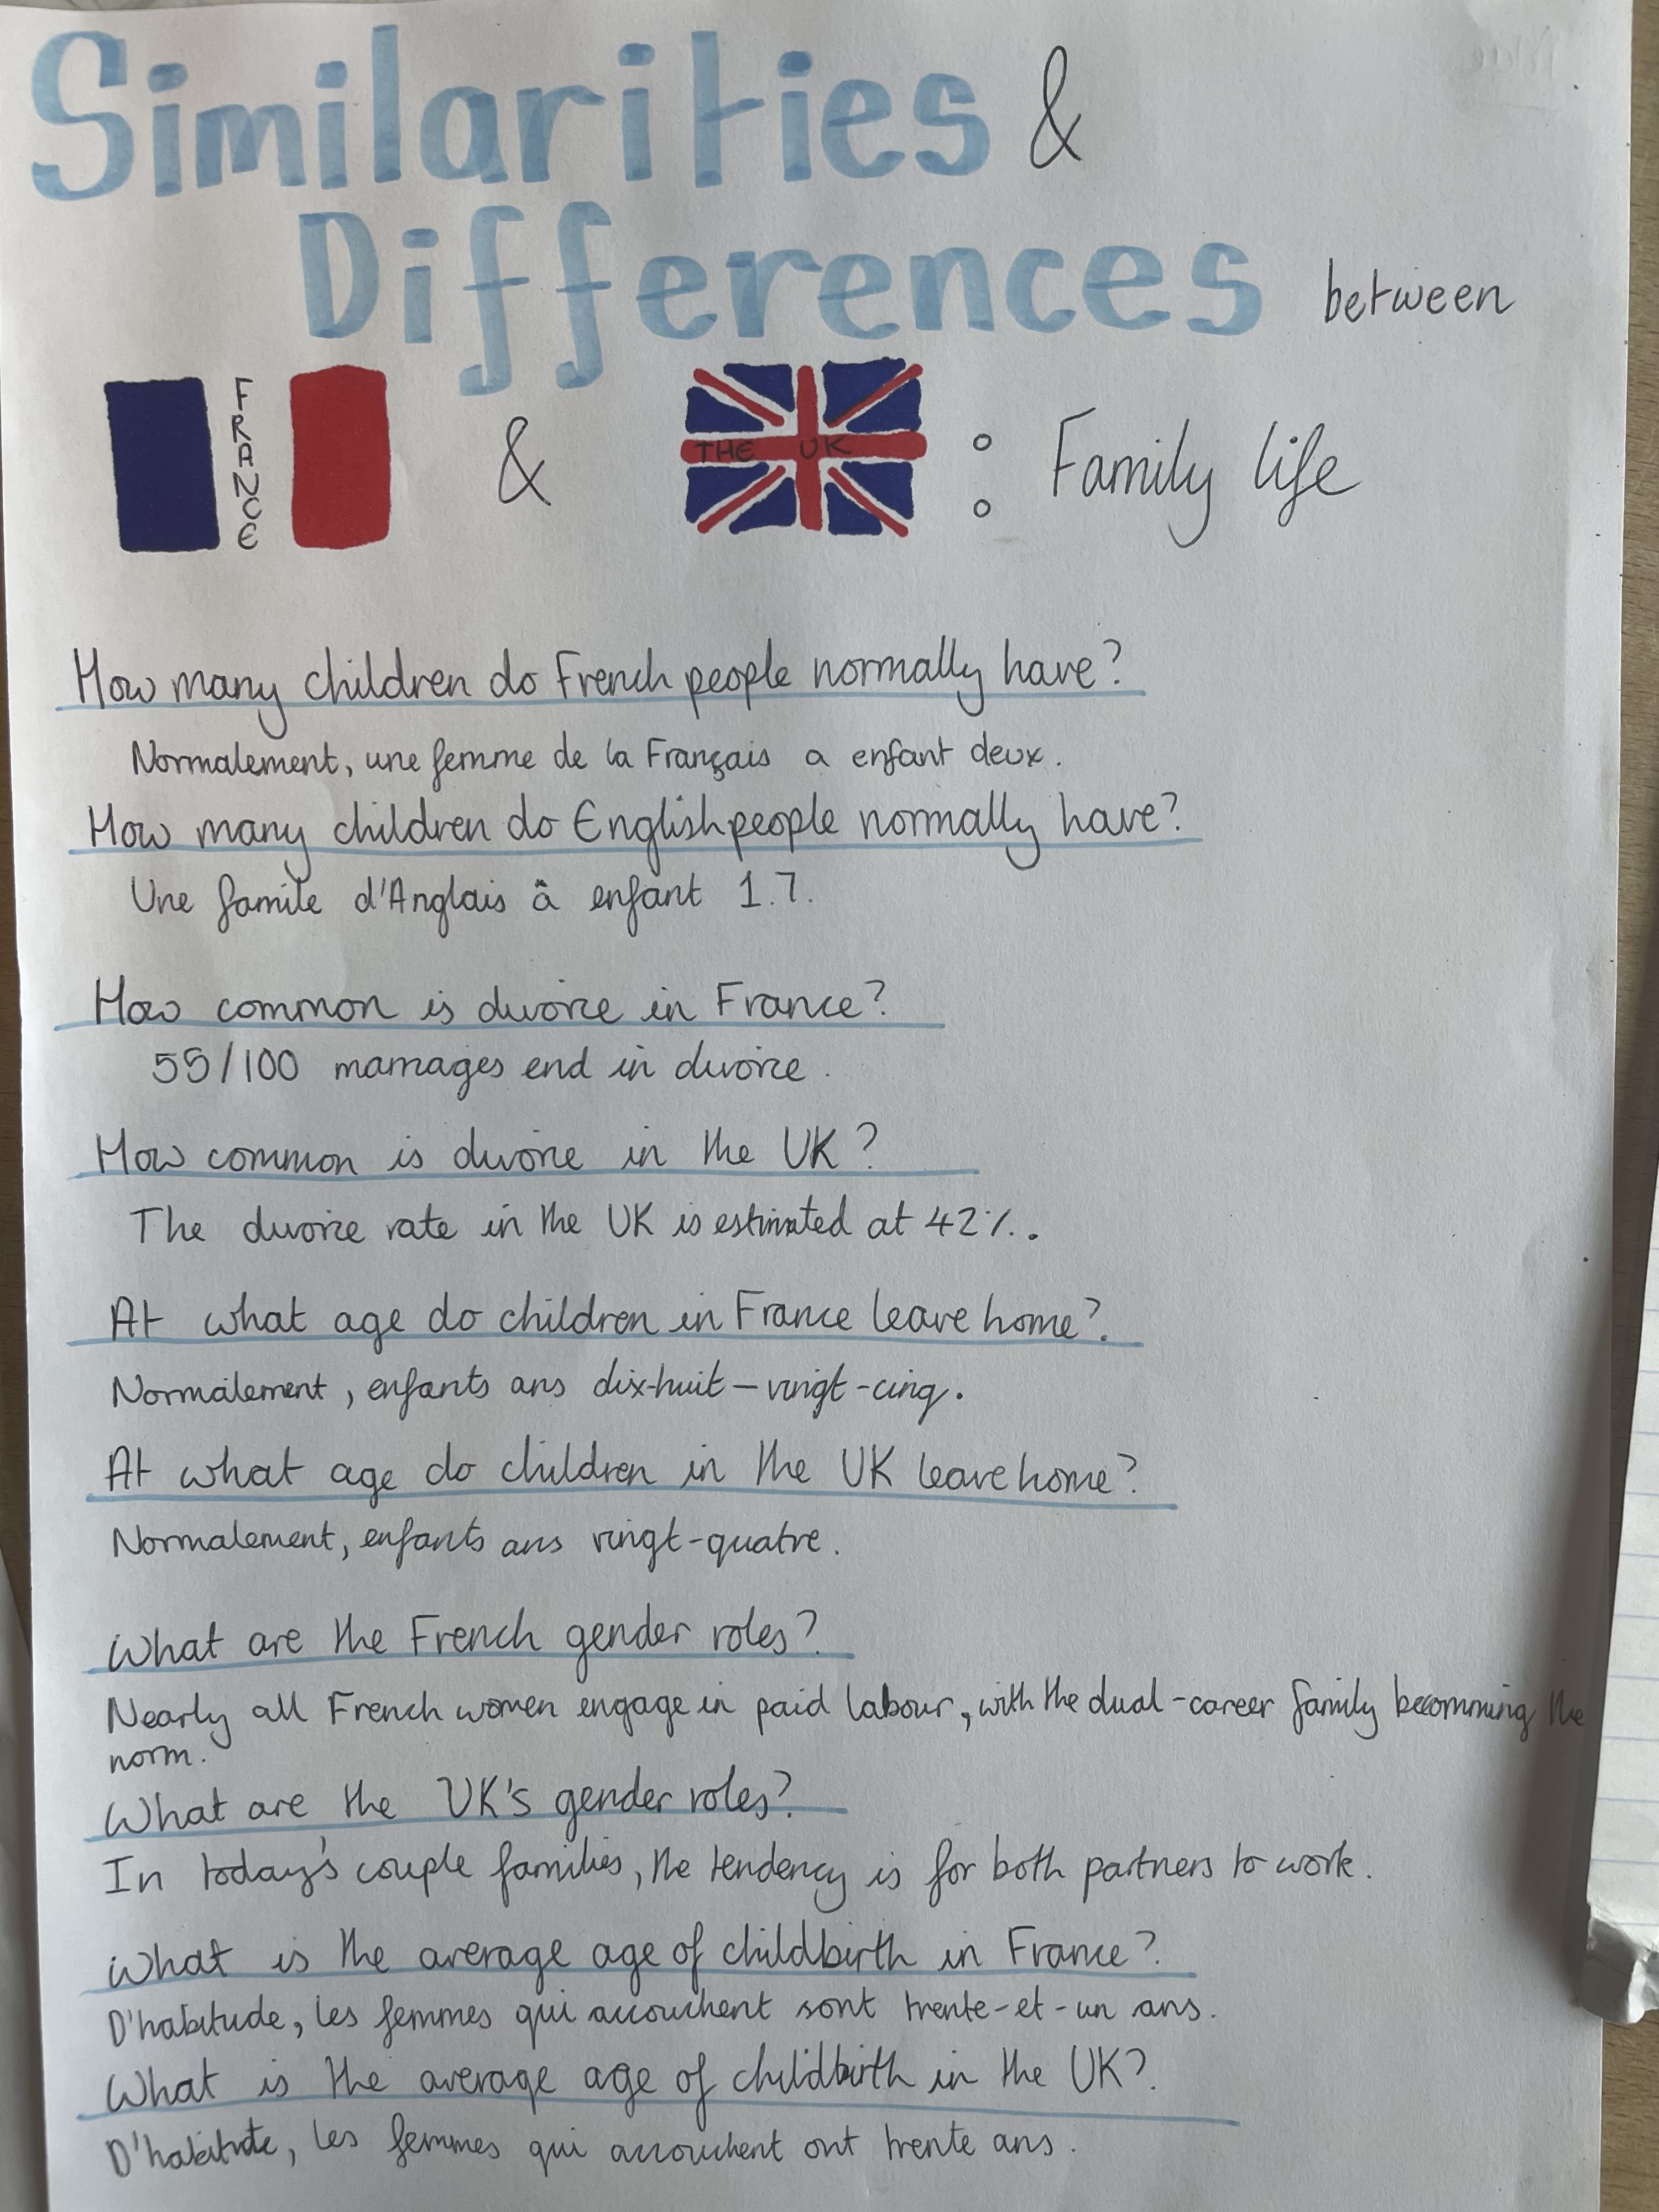 Similarities &
Differences between
FRANCE & THE UK : Family life
How many children do French people normally have?
Normalement, une femme de la Français a enfant deux.
How many children do English people normally have?
Une famile d'Anglais â enfant 1.7.
How common is divorce in France?
55/100 marriages end in divorce.
How common is divorce in the UK?
The divorce rate in the UK is estimated at 42%.
At what age do children in France leave home?
Normalement, enfants ans dix-huit – vingt-cinq.
At what age do children in the UK leave home?
Normalement, enfants ans vingt-quatre.
What are the French gender roles?
Nearly all French women engage in paid labour, with the dual-career family becomming the
norm.
What are the UK's gender roles?
In today's couple families, the tendency is for both partners to work.
What is the average age of childbirth in France?
D'habitude, les femmes qui accouchent sont trente-et-un ans.
What is the average age of childbirth in the UK?
D'habitude, les femmes qui accouchent ont trente ans.